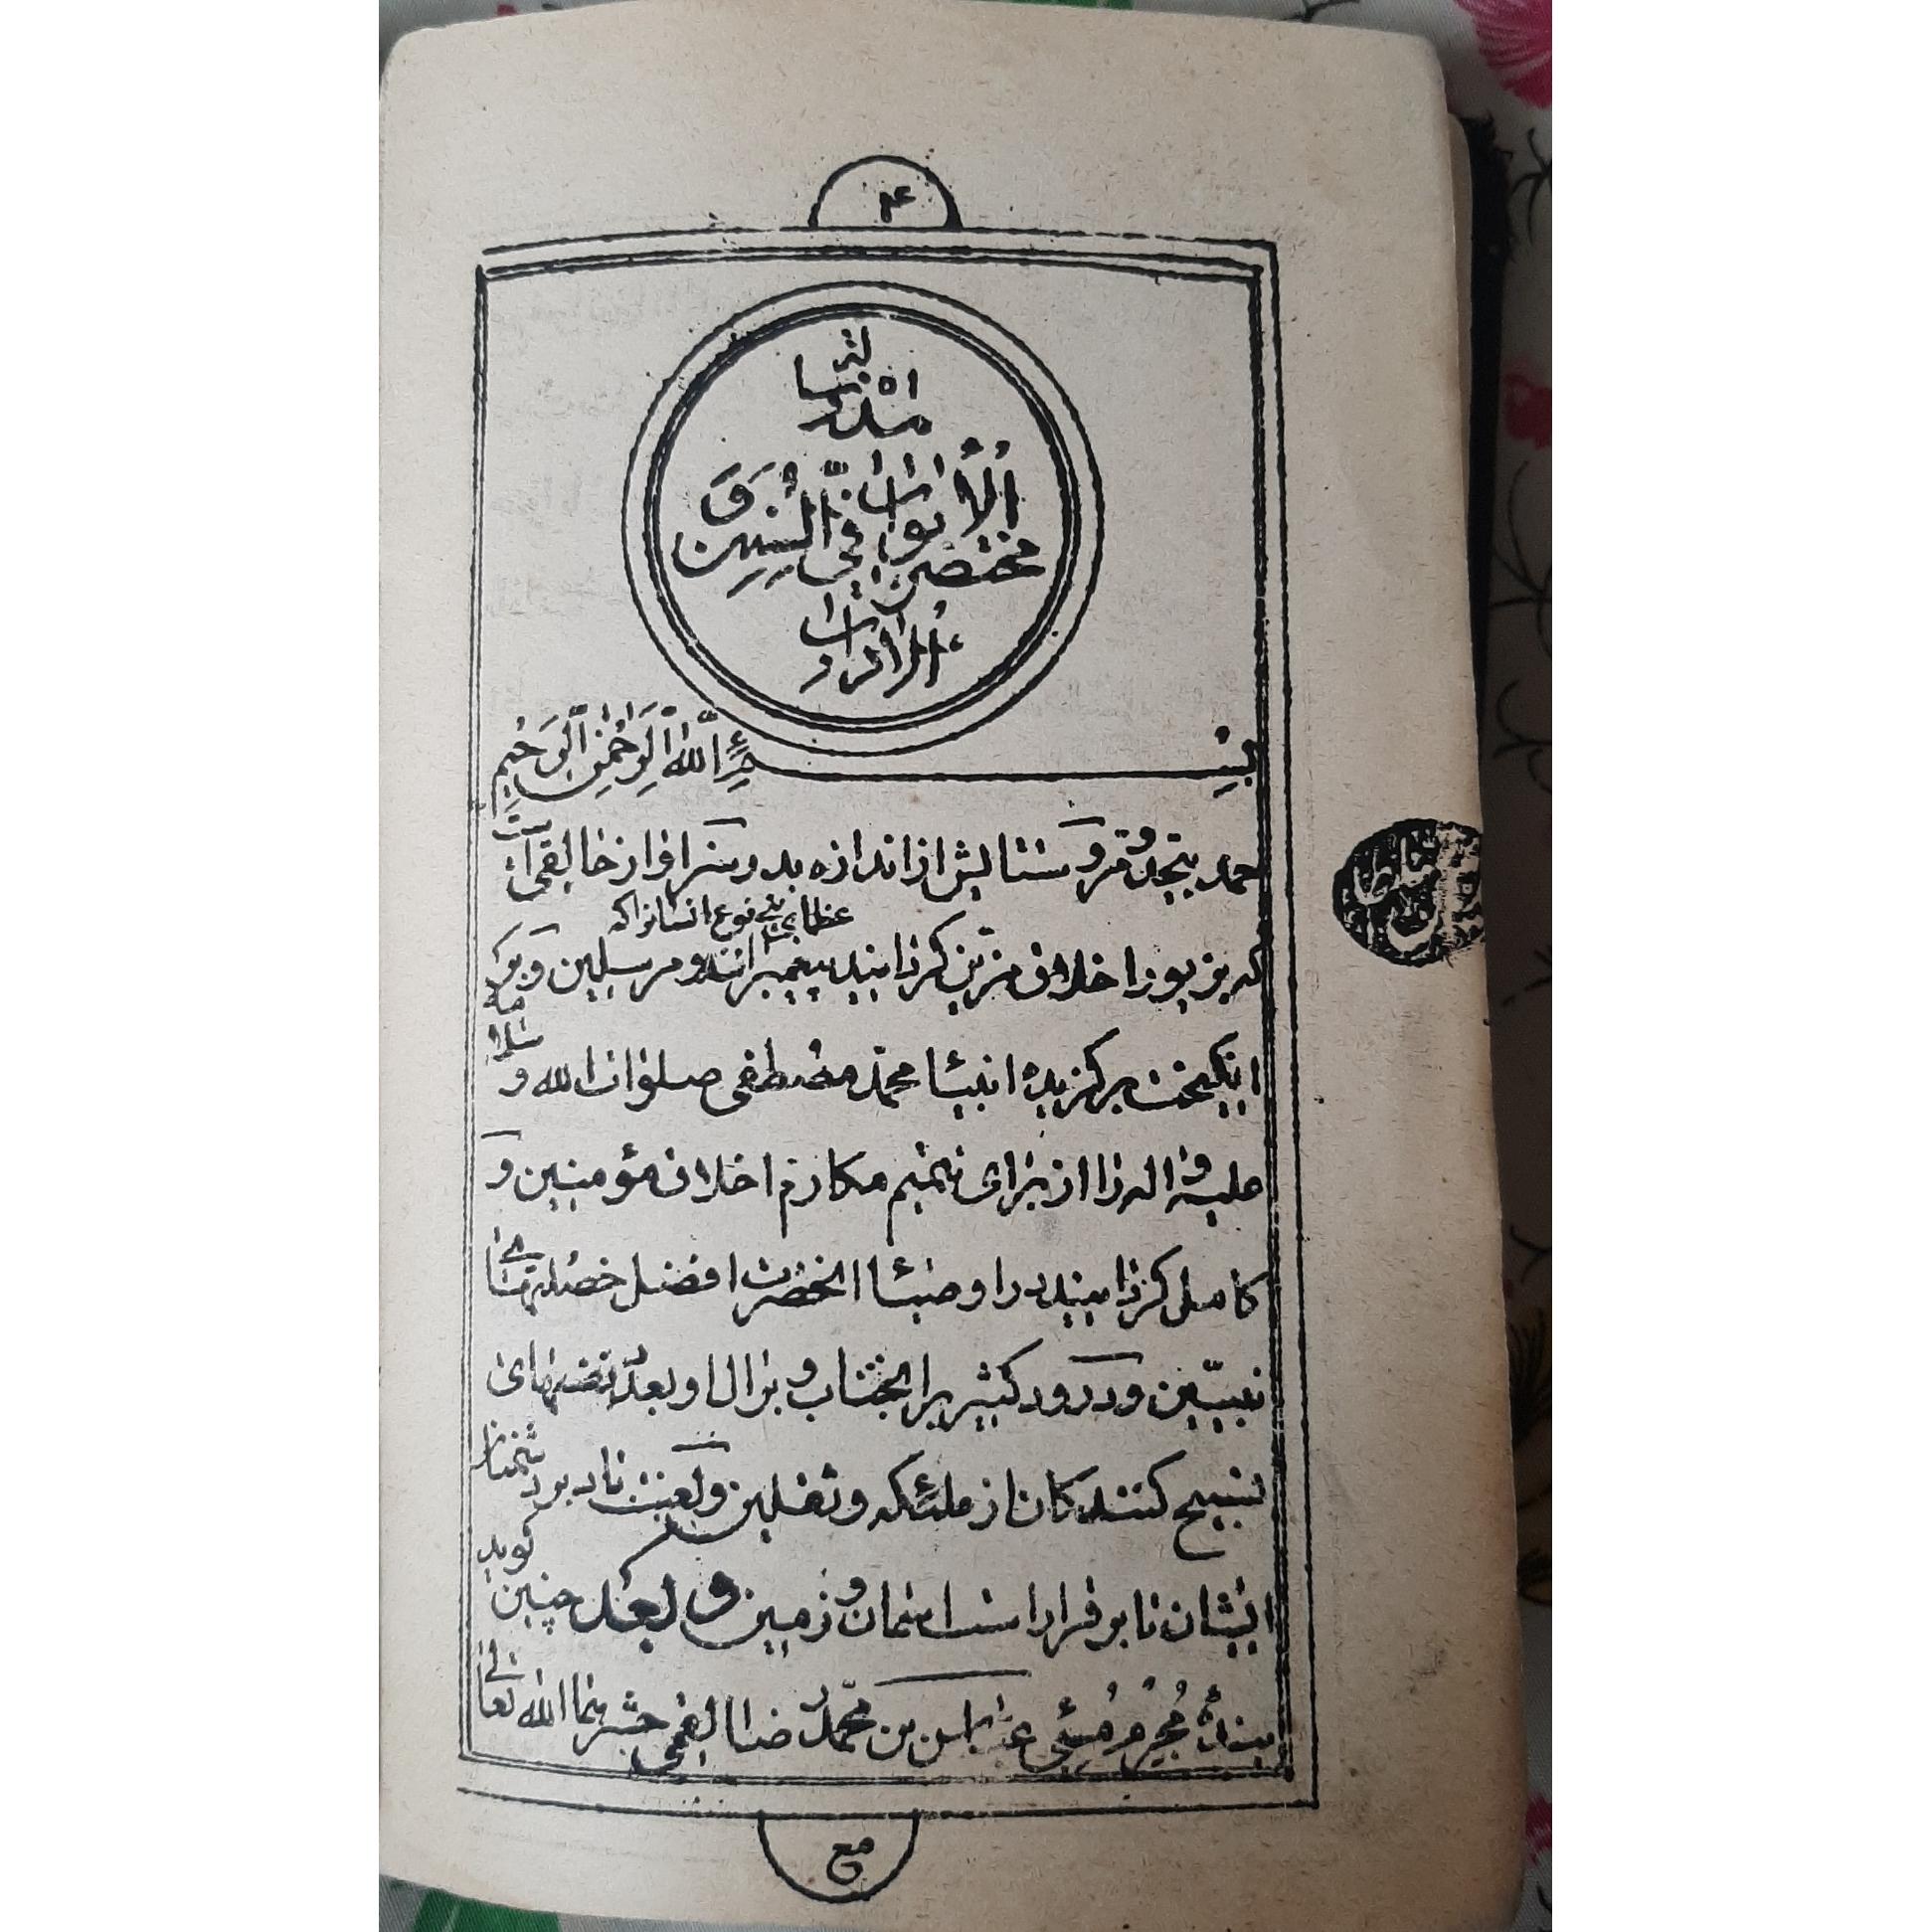 ۴
هذه رسالة
مختصر الأبواب في السنن و
الآداب
بسم الله الرحمن الرحيم
حمد بیحد و مر و ستایش از اندازه بدر سزاوار خالقی است
که بزیور اخلاق مزین گردانید پیغمبران و مرسلین و بر
عظمای بنی نوع انسانرا که
انگیخت برگزیده انبیا محمد مصطفی صلوات الله و سلامه
علیه و اله را از برای تتمیم مکارم اخلاق مؤمنین و
کامل گردانید در اوصیا انحضرت افضل خصلتهای
نبیین و درود کثیر بر انجناب و بر ال او بعدد نفسهای
تسبیح کنندگان از ملئکه و ثقلین و لعنت باد بر دشمنان
ایشان تا برقرار است اسمان و زمین و بعد چنین گوید
بندهٔ مجرم مسیئ عباس بن محمد رضا القمی حشرهما الله تعالی
مع